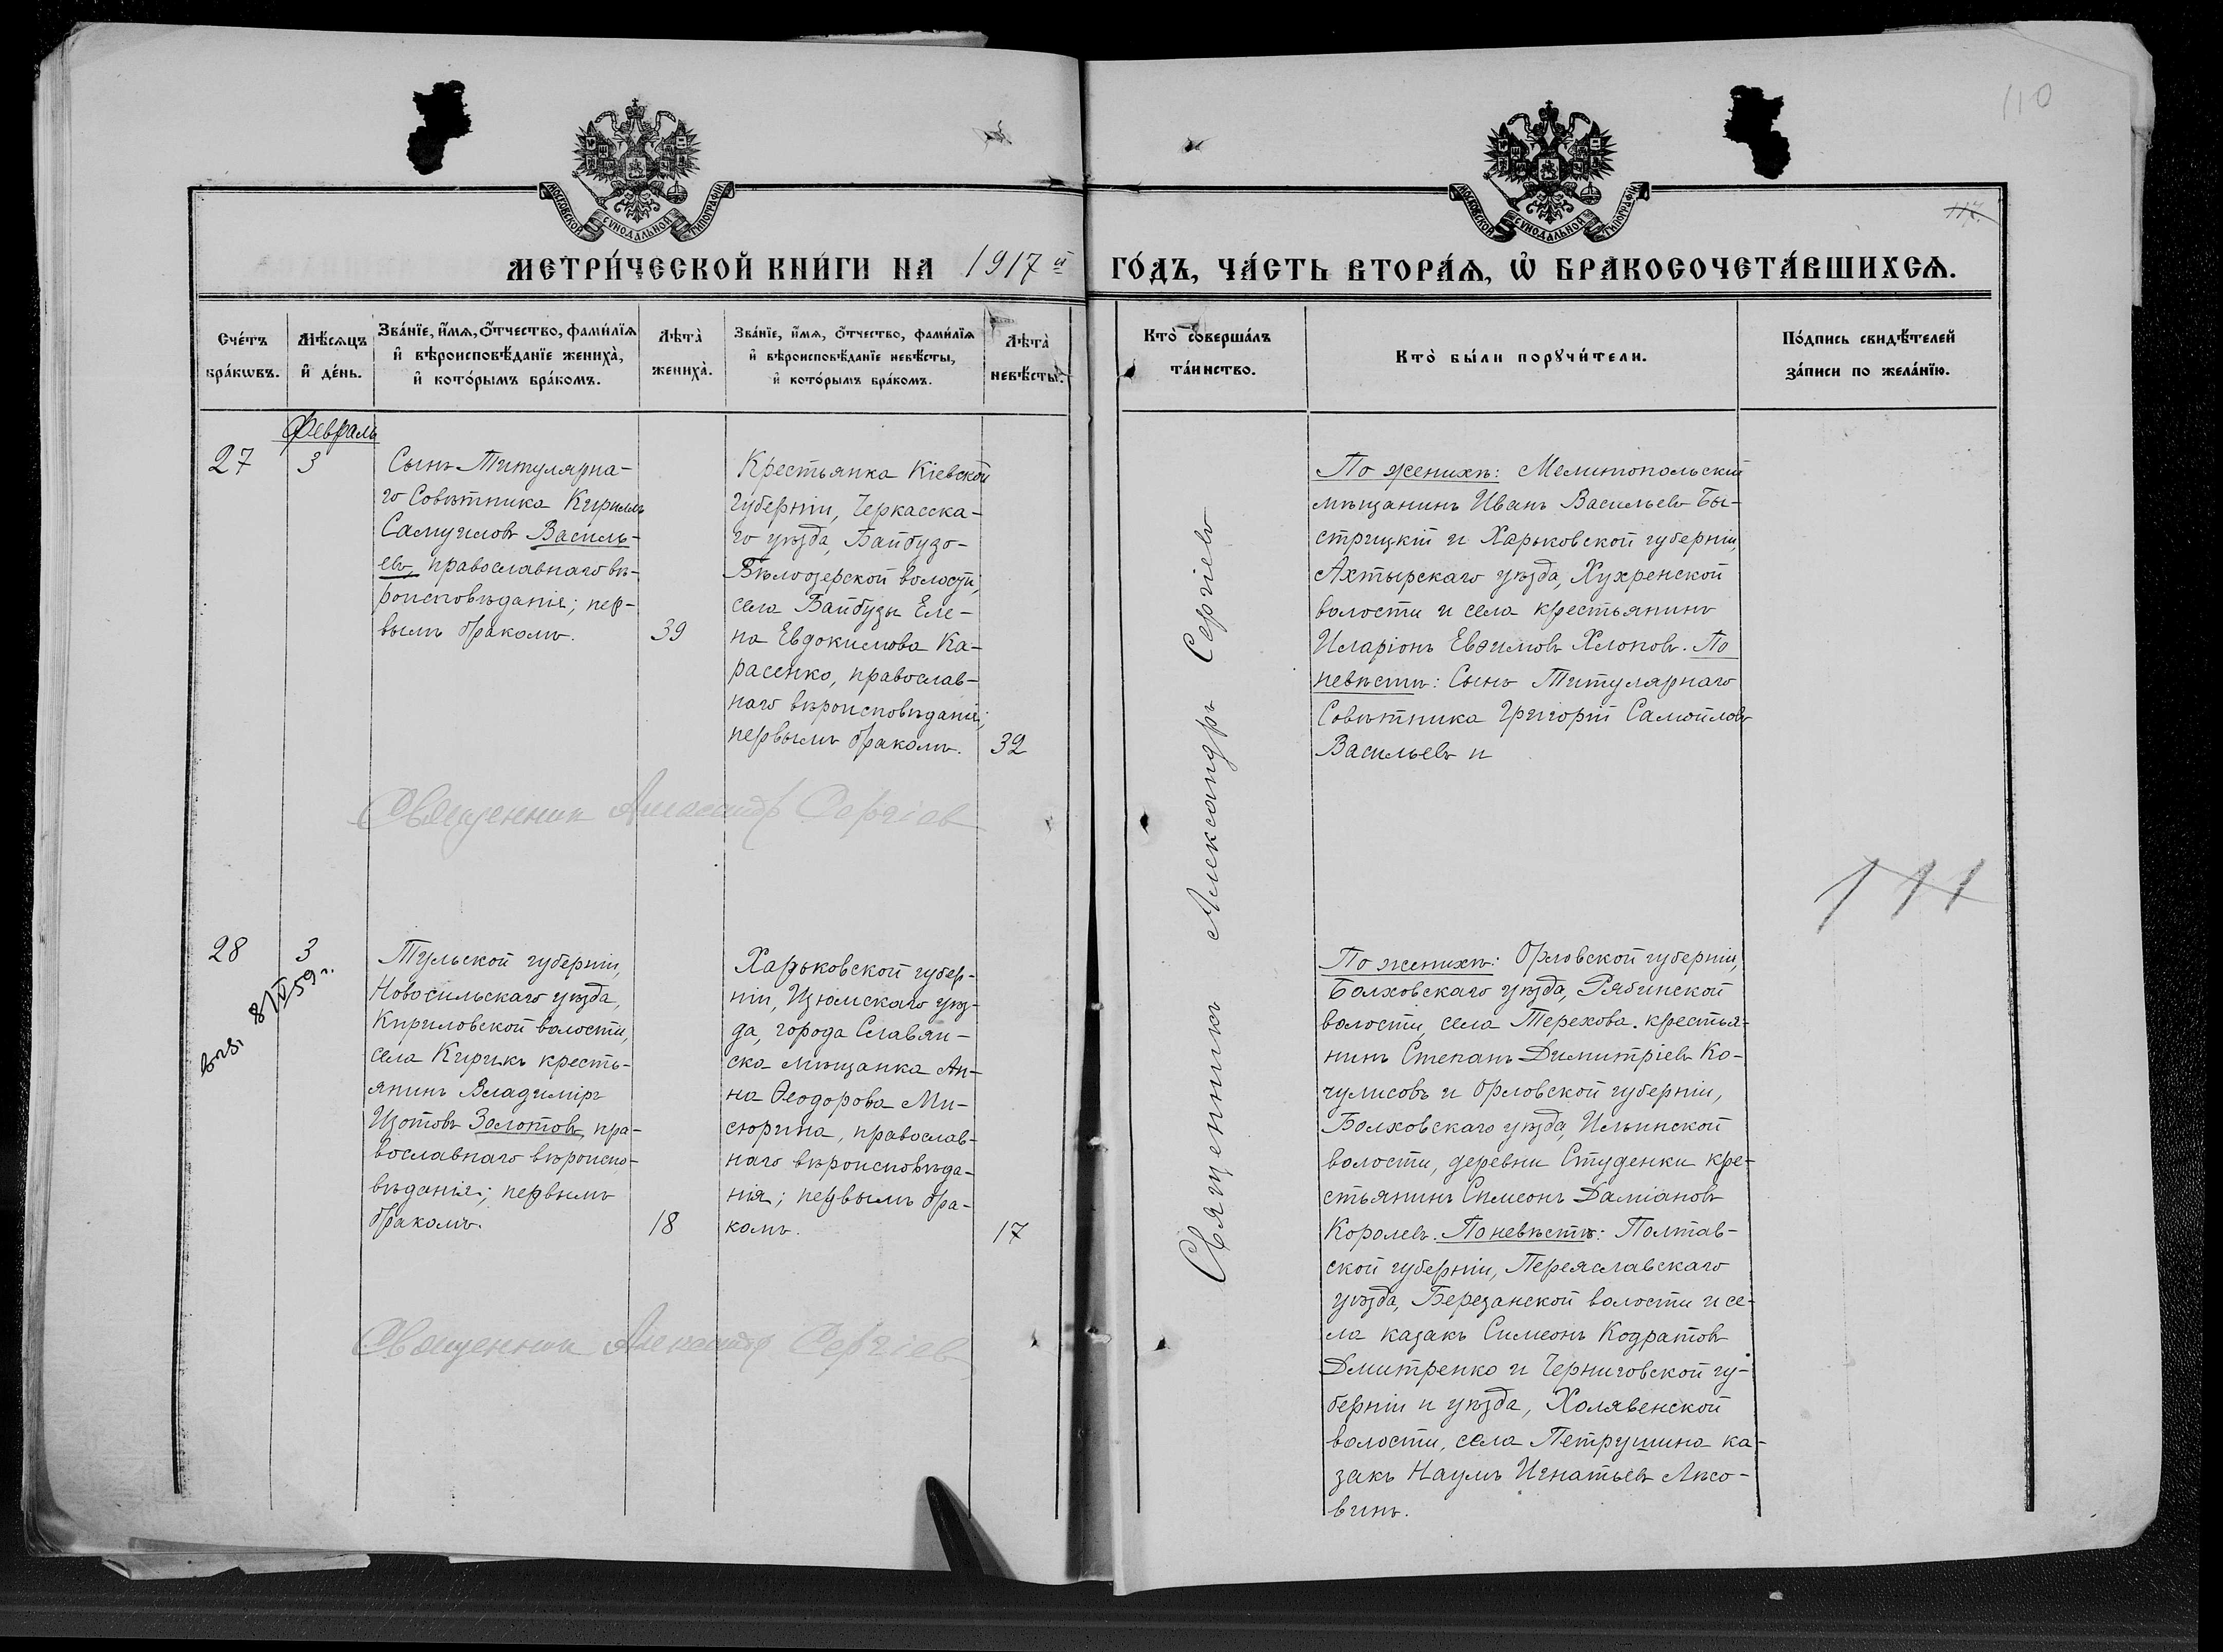 110
117.
МОСКОВСКОЙ СѴНОДАЛЬНОЙ ТИПОГРАФІИ
МОСКОВСКОЙ СѴНОДАЛЬНОЙ ТИПОГРАФІИ
МЕТРИ́ЧЕСКОЙ КНИ́ГИ НА 1917й ГО́ДЪ, ЧА́СТЬ ВТОРА́Ѧ, Ѡ҆ БРАКОСОЧЕТА́ВШИХСѦ.
Сче́тъ
бра́кѡвъ.
Мѣ́сѧцъ
и҆ де́нь.
Зва́нїе, и҆́мѧ, ѻ҆́тчество, фами́лїѧ
и҆ вѣроисповѣ́данїе женихà,
и҆ кото́рымъ бра́комъ.
Лѣтà
женихà.
Зва́нїе, и҆́мѧ, ѻ҆́тчество, фами́лїѧ
и҆ вѣроисповѣ́данїе невѣ́сты,
и҆ кото́рымъ бра́комъ.
Лѣтà
невѣ́сты.
Ктò соверша́лъ
та́инство.
Ктò бы́ли порꙋчи́тели.
По́дпись свидѣ́телей
за́писи по жела́нїю.
Февраль
27
3
Сынъ Титулярна-
го Совѣтника Кириллъ
Самуиловъ Василь-
евъ, православнаго вѣ-
роисповѣданія; пер-
вымъ бракомъ.
39
Крестьянка Кіевской
губерніи, Черкасска-
го уѣзда, Байбузо-
Бѣлоозерской волости,
села Байбузы Еле-
на Евдокимова Ка-
расенко, православ-
наго вѣроисповѣданія;
первымъ бракомъ.
32
Священник Александр Сергіев
Священникъ Александръ Сергіевъ
По женихѣ: Мелитопольскій
мѣщанинъ Иванъ Васильевъ Бы-
стрицкій и Харьковской губерніи,
Ахтырскаго уѣзда, Хухренской
волости и села крестьянинъ
Иларіонъ Евѳимовъ Хлоповъ. По
невѣстѣ: Сынъ Титулярнаго
Совѣтника Григорій Самойловъ
Васильевъ и
111
28
3
8/IV 59 г.
Тульской губерніи,
Новосильскаго уѣзда,
Кириловской волости,
села Кирикъ кресть-
янинъ Владиміръ
Изотовъ Золотовъ, пра-
вославнаго вѣроиспо-
вѣданія; первымъ
бракомъ.
18
Харьковской губер-
ніи, Изюмскаго уѣз-
да, города Славян-
ска мѣщанка Ан-
на Ѳеодорова Ми-
сюрина, православ-
наго вѣроисповѣда-
нія; первымъ бра-
комъ.
17
Священник Александр Сергіев
По женихѣ: Орловской губерніи,
Болховскаго уѣзда, Рябинской
волости, села Терехова. крестья-
нинъ Степанъ Димитріевъ Ко-
чулисовъ и Орловской губерніи,
Болховскаго уѣзда, Ильинской
волости, деревни Студенки кре-
стьянинъ Симеонъ Даміановъ
Королевъ. По невѣстѣ: Полтав-
ской губерніи, Переяславскаго
уѣзда, Березанской волости и се-
ла казакъ Симеонъ Кодратовъ
Дмитренко и Черниговской гу-
берніи и уѣзда, Холявенской
волости, села Петрушина ка-
закъ Наумъ Игнатьевъ Лысо-
винъ.